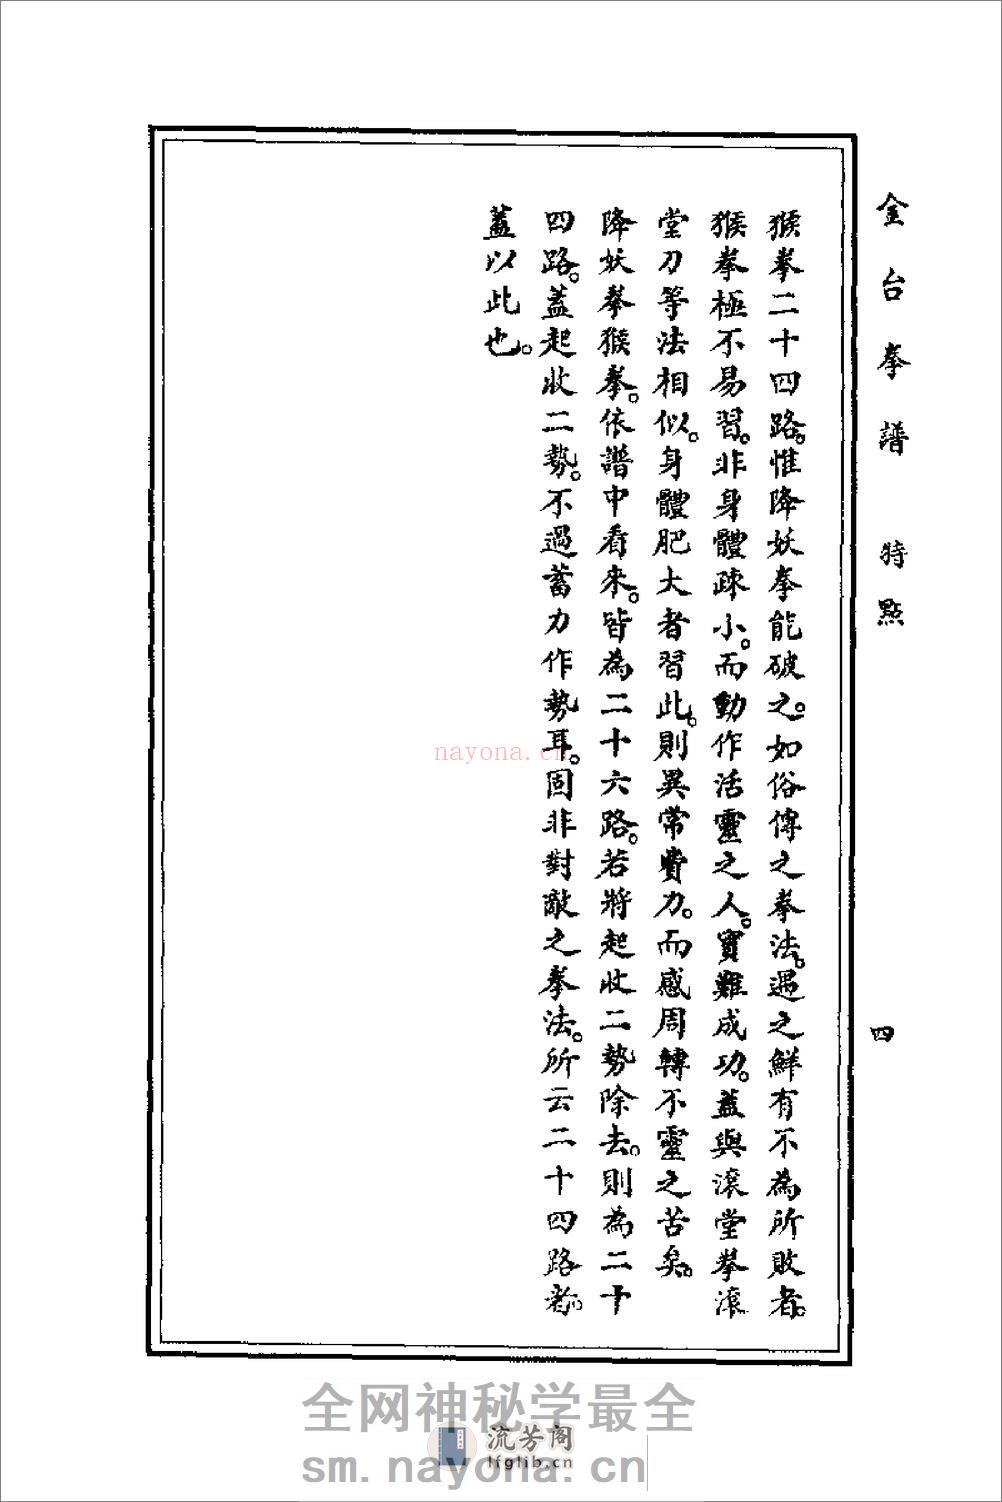 金台拳譜　特點
四
猴拳二十四路。惟降妖拳能破之。如俗傳之拳法。遇之鮮有不為所敗者。
猴拳極不易習。非身體疎小。而動作活靈之人。實難成功。蓋與滾堂拳滾
堂刀等法相似。身體肥大者習此。則異常費力。而感周轉不靈之苦矣。
降妖拳猴拳。依譜中看來。皆為二十六路。若將起收二勢除去。則為二十
四路。蓋起收二勢。不過蓄力作勢耳。固非對敵之拳法。所云二十四路者。
蓋以此也。
nayona.cn
全网神秘学最全
流芳阁
lfglib.cn
sm.nayona.cn